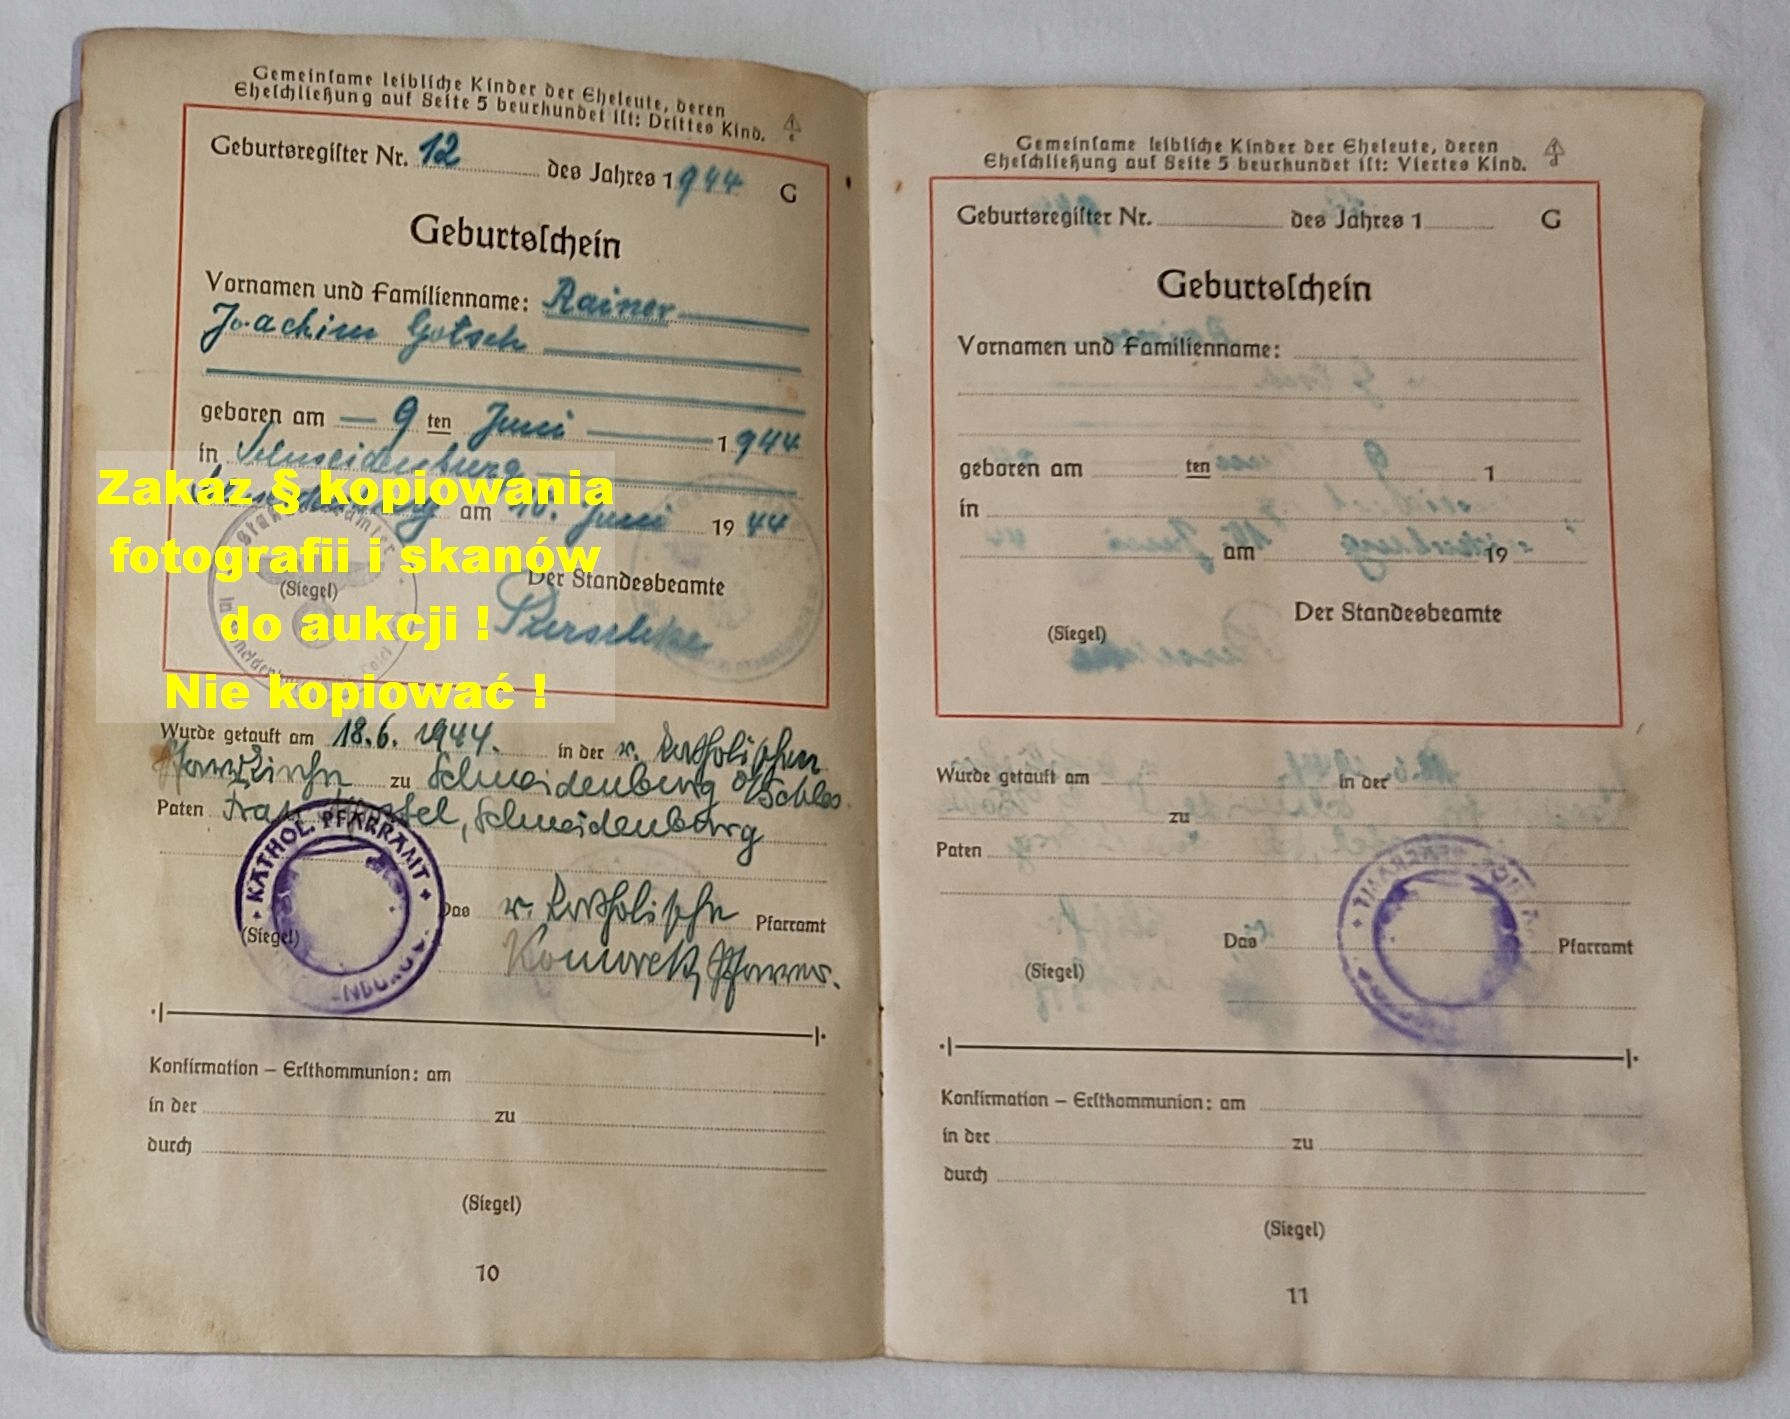 Gemeinsame leibliche Kinder der Eheleute, deren
Eheschließung auf Seite 5 beurkundet ist: Drittes Kind.
Geburtsregister Nr. 12 des Jahres 1944 G
Geburtsschein
Vornamen und Familienname: Rainer
Joachim Gotsch
geboren am 9 ten Juni 1944
in Schneidenburg
Schneidenburg am 10. Juni 1944
(Siegel)
Der Standesbeamte
Wurde getauft am 18.6.1944. in der r. katholischen
Pfarrkirche zu Schneidenburg O/Schles.
Paten Schneidenburg
KATHOL. PFARRAMT
(Siegel)
Das r. katholische Pfarramt
Pfarrer.
Konfirmation – Erstkommunion: am
in der zu
durch
(Siegel)
10
Zakaz § kopiowania
fotografii i skanów
do aukcji !
Nie kopiować !
Gemeinsame leibliche Kinder der Eheleute, deren
Eheschließung auf Seite 5 beurkundet ist: Viertes Kind.
Geburtsregister Nr. des Jahres 1 G
Geburtsschein
Vornamen und Familienname:
geboren am ten 1
in
am 19
Der Standesbeamte
(Siegel)
Wurde getauft am in der
zu
Paten
Das Pfarramt
(Siegel)
Konfirmation – Erstkommunion: am
in der zu
durch
(Siegel)
11